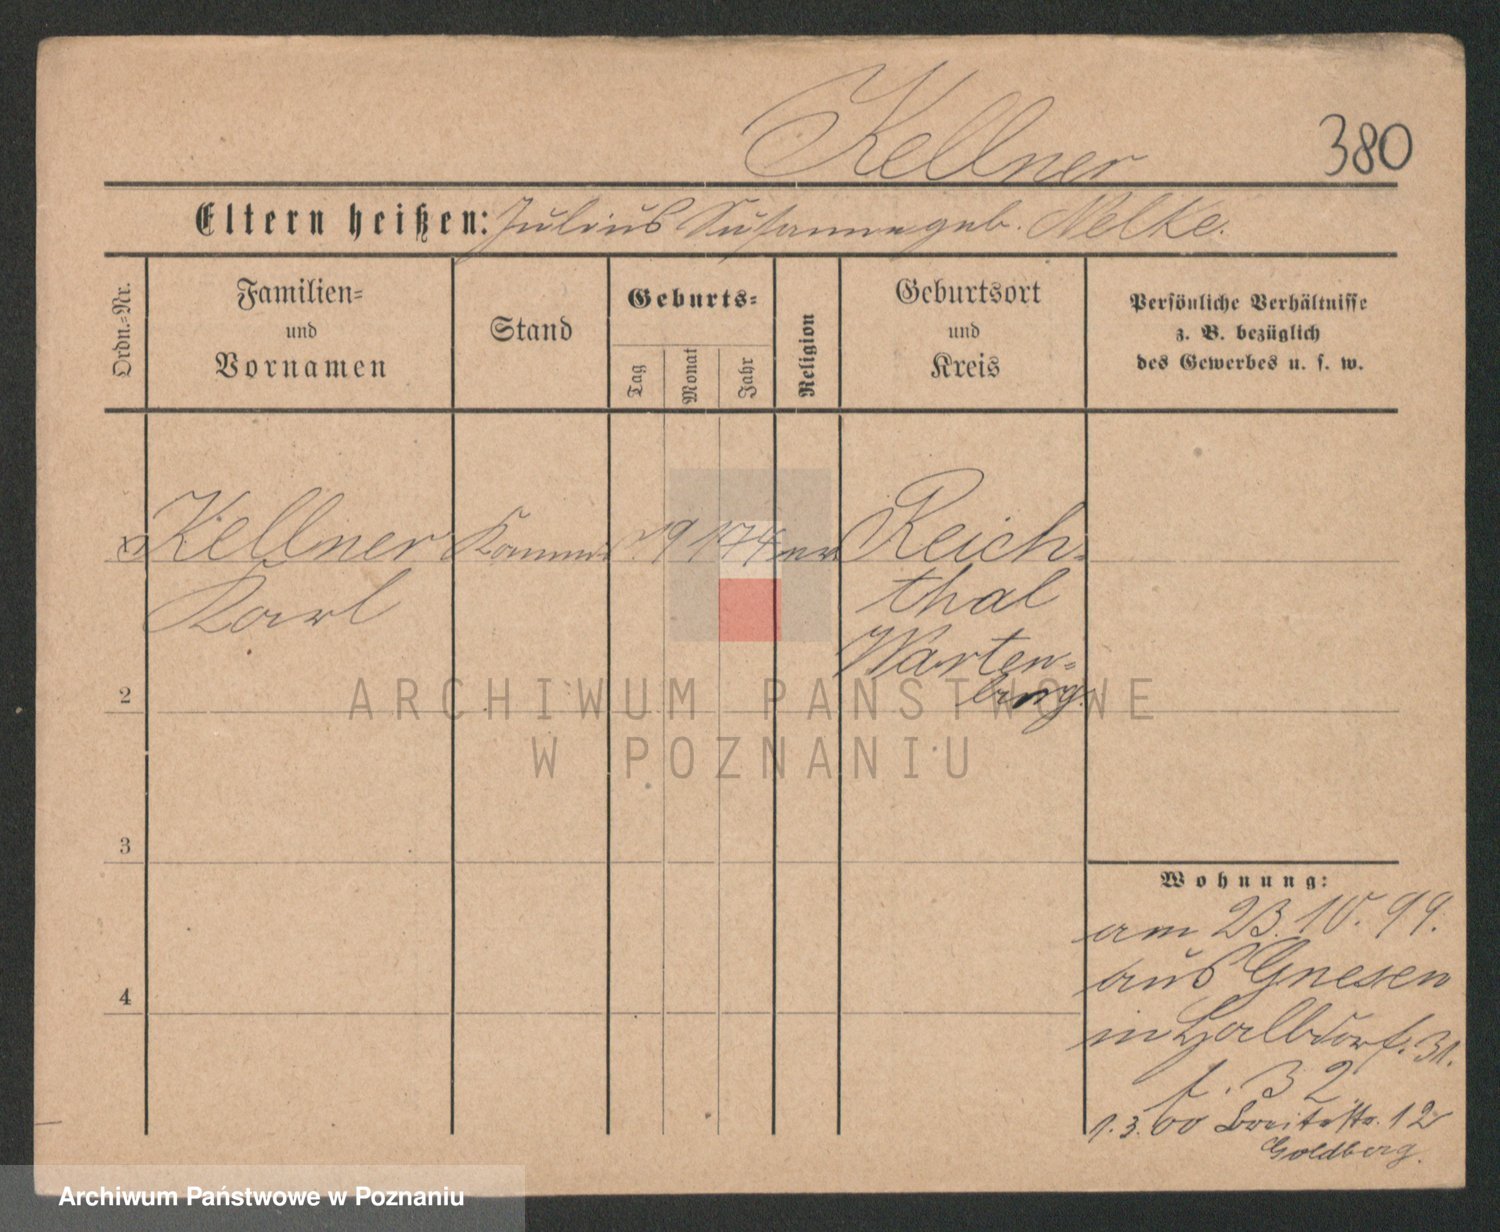 Kellner
380
Eltern heißen: Julius Susanne geb. Nelke.
Ordn.=Nr.
Familien=
und
Vornamen
Stand
Geburts=
Tag
Monat
Jahr
Religion
Geburtsort
und
Kreis
Persönliche Verhältnisse
z. B. bezüglich
des Gewerbes u. s. w.
Kellner
Karl
Kommis
9 1 74
Reich-
thal
Warten-
berg.
2
3
4
Wohnung:
am 23.10.99.
aus Gnesen
in Halbdorf. 31.
f. 32
1.3.00 Breitestr. 12
Goldberg.
ARCHIWUM PAŃSTWOWE
W POZNANIU
Archiwum Państwowe w Poznaniu